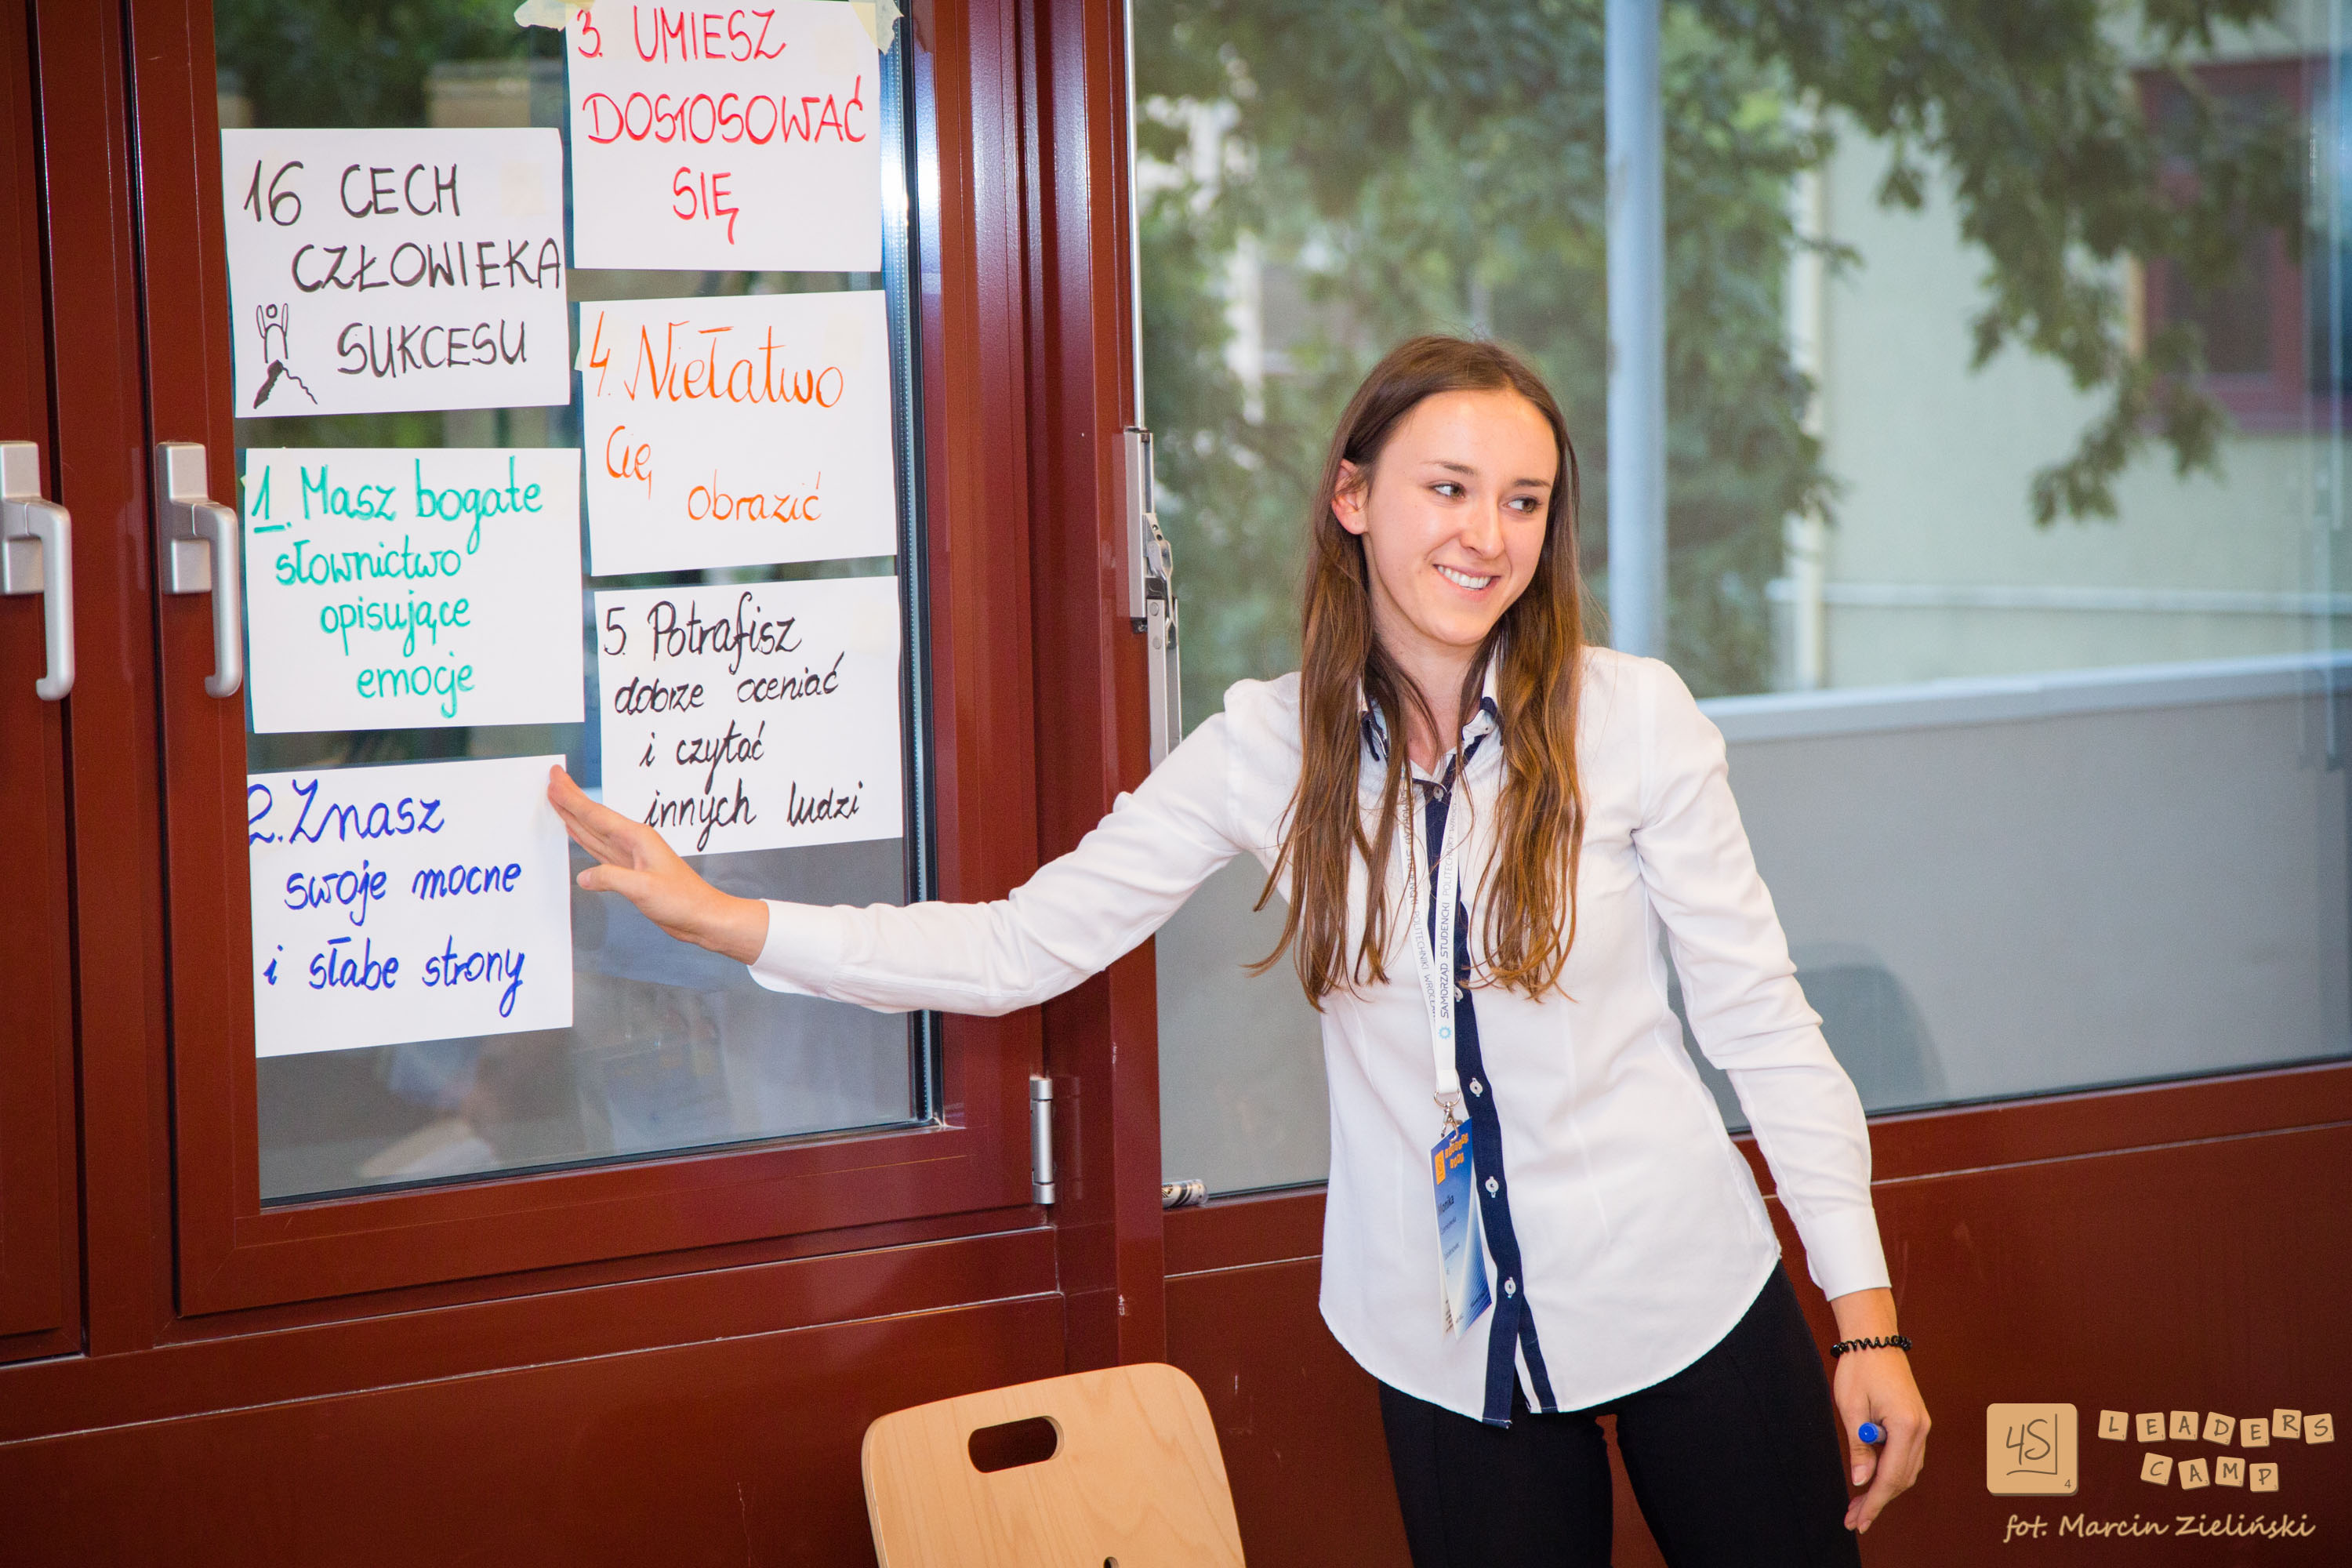 16 CECH
CZŁOWIEKA
SUKCESU
1. Masz bogate
słownictwo
opisujące
emocje
2. Znasz
swoje mocne
i słabe strony
3. UMIESZ
DOSTOSOWAĆ
SIĘ
4. Niełatwo
Cię
obrazić
5. Potrafisz
dobrze oceniać
i czytać
innych ludzi
SAMORZĄD STUDENCKI POLITECHNIKI
4S
4
LEADERS
CAMP
fot. Marcin Zieliński